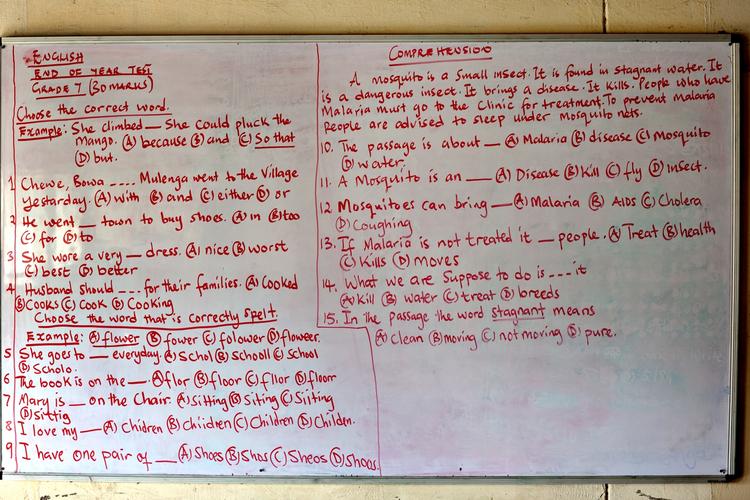 ENGLISH
END OF YEAR TEST
GRADE 7 (30 MARKS)
Choose the correct word.
Example: She climbed — She could pluck the
mango. (A) because (B) and (C) So that
(D) but.
1 Chewe, Bowa ---- Mulenga went to the Village
Yestarday. (A) with (B) and (C) either (D) or
2 He went — town to buy shoes. (A) in (B) too
(C) for (D) to
3 She wore a very — dress. (A) nice (B) worst
(C) best (D) better
4 Husband should --- for their families. (A) Cooked
(B) Cooks (C) Cook (D) Cooking
Choose the word that is correctly spelt.
Example: (A) flower (B) fower (C) folower (D) floweer.
5 She goes to — everyday. (A) Schol (B) Schooll (C) School
(D) Scholo.
6 The book is on the —. (A) flor (B) floor (C) fllor (D) floorr
7 Mary is — on the Chair. (A) Sitting (B) Siting (C) Siiting
(D) Sittig
8 I love my — (A) Chidren (B) Chiidren (C) Children (D) Childen.
9 I have one pair of — (A) Shoes (B) Shos (C) Sheos (D) Shoos.
COMPREHENSION
A mosquito is a Small insect. It is found in stagnant water. It
is a dangerous insect. It brings a disease. It Kills. People who have
Malaria must go to the Clinic for treatment. To prevent malaria
People are advised to sleep under mosquito nets.
10. The passage is about — (A) Malaria (B) disease (C) Mosquito
(D) water.
11. A Mosquito is an — (A) Disease (B) Kill (C) fly (D) Insect.
12 Mosquitoes can bring — (A) Malaria (B) AIDS (C) Cholera
(D) Coughing
13. If Malaria is not treated it — people. (A) Treat (B) health
(C) Kills (D) moves
14. What we are Suppose to do is --- it
(A) Kill (B) water (C) treat (D) breeds
15. In the passage the word stagnant means
(A) Clean (B) moving (C) not moving (D) pure.